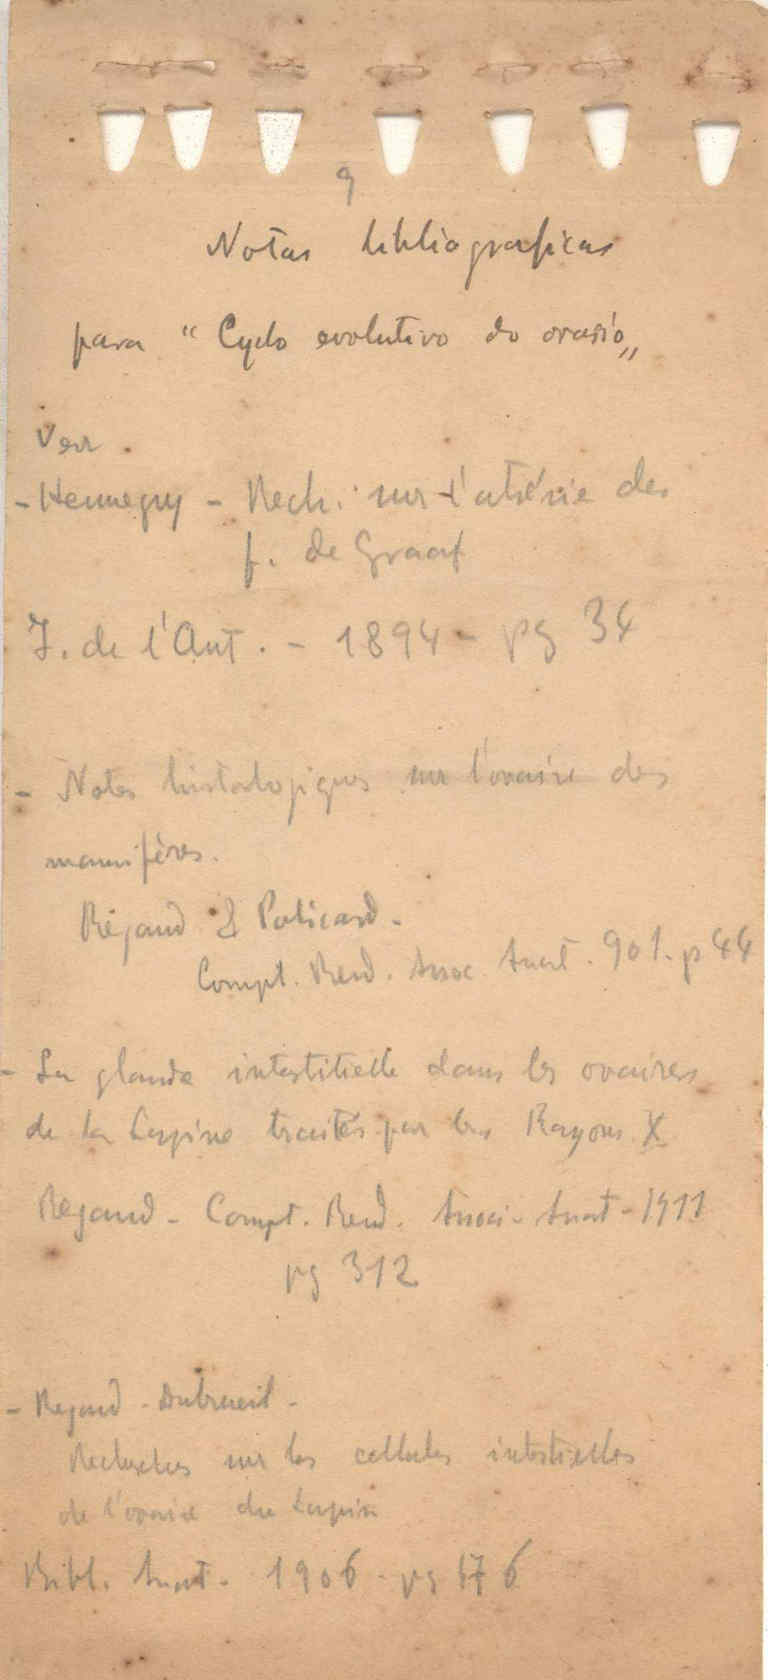 9
Notas bibliograficas
para “Cyclo evolutivo do ovario„
Ver
- Hennegry - Rech. sur l'atrésie des
f. de Graaf
J. de l'Ant. - 1894 - pg 34
- Notes histologiques sur l'ovaire des
mammifères.
Regaud & Policard -
Compt. Rend. Assoc. Anat. 901. p 44
- La glande interstitielle dans les ovaires
de la Lapine traités par les Rayons X
Regaud - Compt. Rend. Associ - Anat - 1911
pg 312
- Regaud - Dubreuil -
Recherches sur les cellules interstitielles
de l'ovaire du Lapin
Bibl. Anat - 1906 - pg